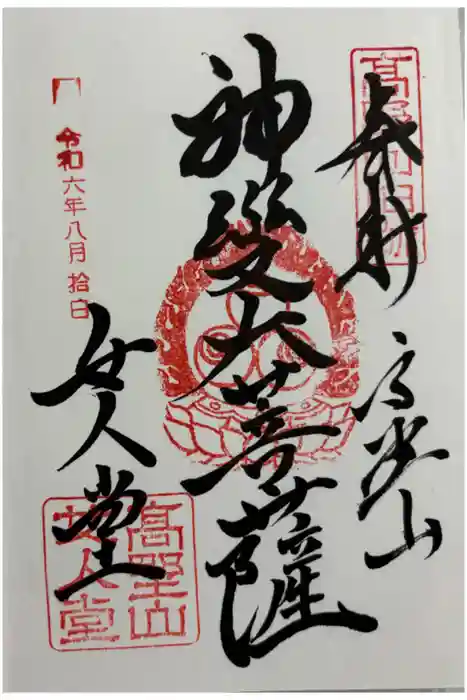 奉拝
高野山
神變大菩薩
令和六年八月拾日
女人堂
高野山
女人堂